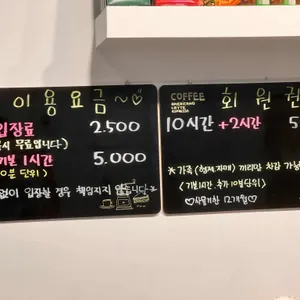 이용요금~♡
입장료 2.500
무료입니다)
기본 1시간 5.000
0분 단위)
없이 입장할 경우 책임지지 않습니다
COFFEE
AMERICANO
LATTE
ESPRESSO
회원권
10시간 +2시간 5
*가족(형제,자매)끼리만 차감 가능
(기본1시간 추가 10분단위)
♡사용기한 12개월♡